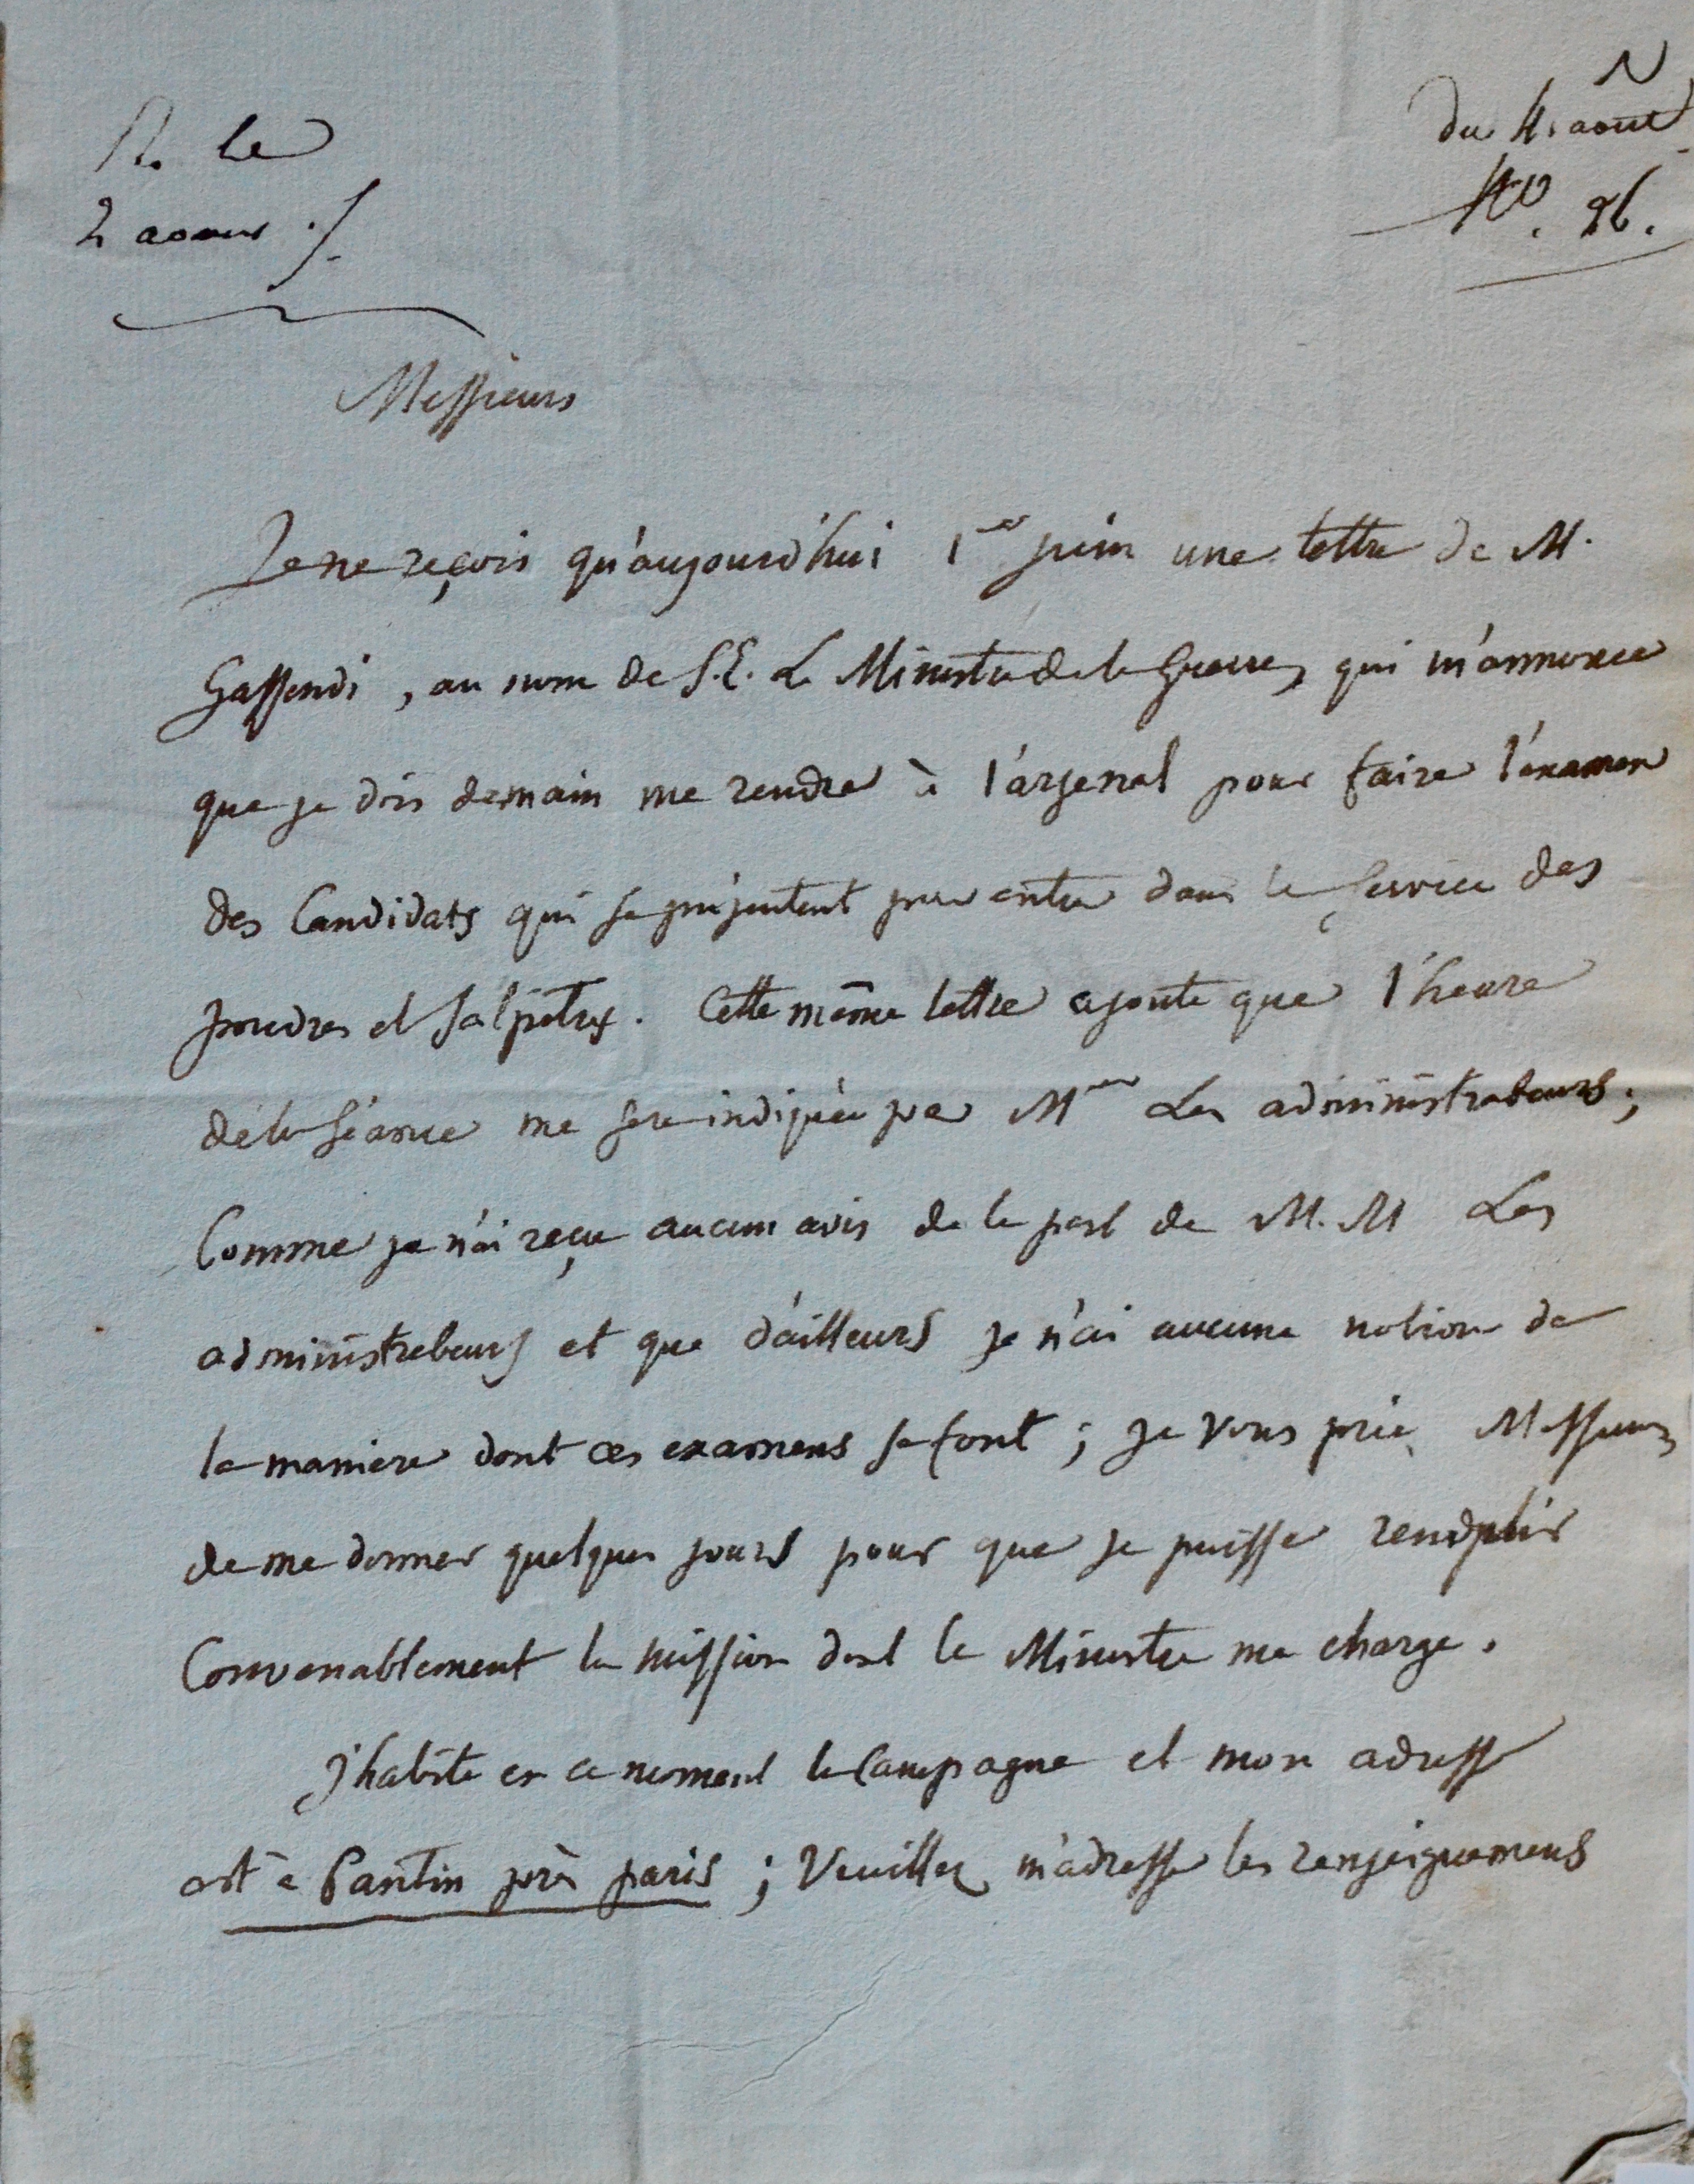 R. le
2 aoust ./.
N
du 4. aout
No. 26.
Messieurs
Je ne reçois qu'aujourd'hui 1er juin une lettre de M.
Gassendi, au nom de S.E. Le Ministre de la Guerre, qui m'annonce
que je dois demain me rendre à l'arsenal pour faire l'examen
des Candidats qui se présentent pour entrer dans le service des
poudres et salpêtres. Cette même lettre ajoute que l'heure
de la séance me sera indiquée par Mrs Les administrateurs;
Comme je n'ai reçu aucun avis de la part de M.M Les
administrateurs et que d'ailleurs je n'ai aucune notion de
la maniere dont ces examens se font; je vous prie, Messieurs
de me donner quelques jours pour que je puisse remplir
Convenablement la mission dont le Ministre me charge.
J'habite en ce moment la Campagne et mon adresse
est à Pantin près paris; Veuillez m'adresser les renseignemens